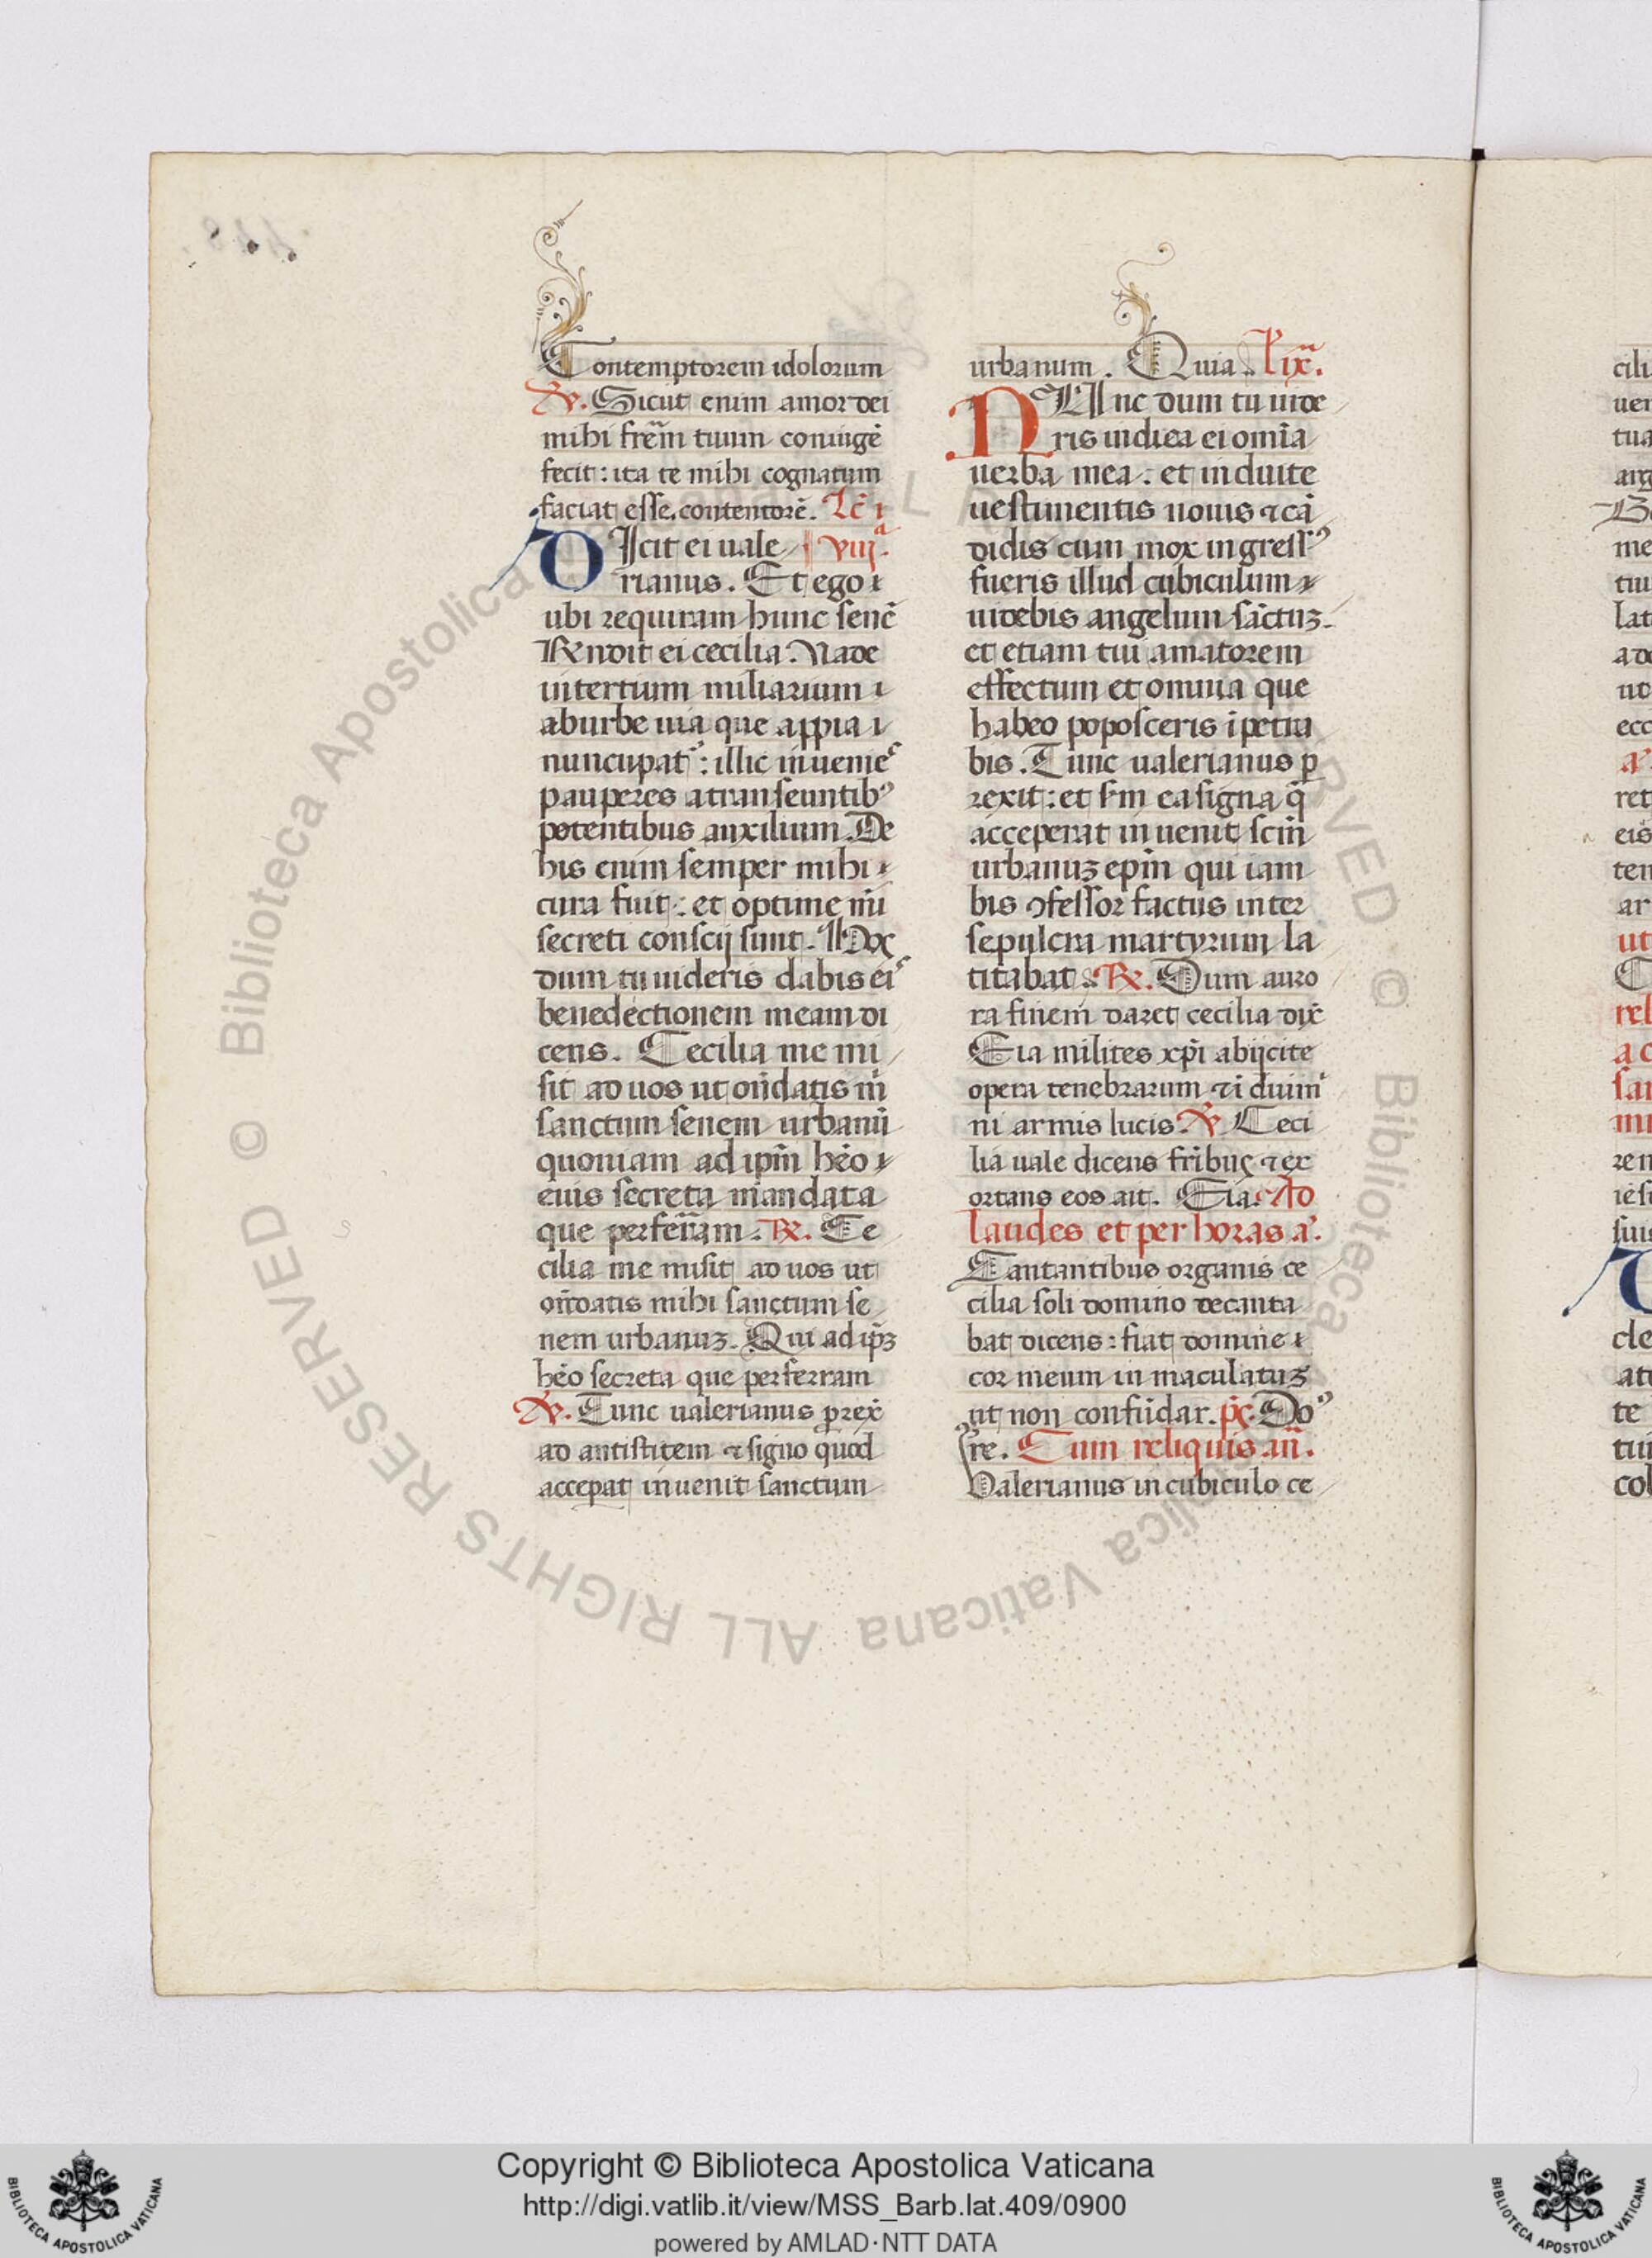 Contemptorem idolorum
℣. Sicut enim amor dei
mihi frēm tuum coniugē
fecit: ita te mihi cognatum
faciat esse contentorē. Lc̄
DIcit ei uale viijª.
rianus. Et ego
ubi requiram hunc senē
Rn̄dit ei cecilia. Vade
in tertium miliarium
ab urbe uia que appia
nuncupat᷑: illic inuenies
pauperes a transeuntibꝰ
potentibus auxilium. De
his enim semper mihi
cura fuit: et optime mi
secreti conscij sunt. Hos
dum tu uideris dabis eis
benedectionem meam di
cens. Cecilia me mi
sit ad uos ut on̄datis m̄
sanctum senem urbanū
quoniam ad ip̄m hēo
eius secreta mandata
que perferram. ℟. Ce
cilia me misit ad uos ut
on̄datis mihi sanctum se
nem urbanuꝫ. Qui ad ip̄ꝫ
hēo secreta que perferram
℣. Tunc ualerianus prex̄
ad antistitem ⁊ signo quod
accepat inuenit sanctum
urbanum. Quia. L̄ ixª.
NUnc dum tu uide
ris indica ei omīa
uerba mea: et induite
uestimentis nouis ⁊ cā
didis cum mox ingressꝰ
fueris illud cubiculum
uidebis angelum sāctuꝫ
et etiam tui amatorem
effectum et omnia que
habeo poposceris īpetra
bis. Tunc ualerianus p
rexit: et sm̄ ea signa q̄
acceperat inuenit scm̄
urbanuꝫ ep̄m qui iam
bis ꝯfessor factus inter
sepulcra martyrum la
titabat. ℟. Dum auro
ra finem daret cecilia dix̄
Eia milites xp̄i abijcite
opera tenebrarum ⁊ īduim
ni armis lucis ℣. Ceci
lia uale dicens frībus ⁊ ex
ortans eos ait. Eia. Ad
laudes et per horas a᷑.
Cantantibus organis ce
cilia soli domino decanta
bat dicens: fiat domine
cor meum inmaculatuꝫ
ut non confūdar. ps. Doꝰ
re. Cum reliquis an̄.
Valerianus in cubiculo ce
Copyright © Biblioteca Apostolica Vaticana
http://digi.vatlib.it/view/MSS_Barb.lat.409/0900
powered by AMLAD·NTT DATA
© Biblioteca Apostolica Vaticana ALL RIGHTS RESERVED
BIBLIOTECA APOSTOLICA VATICANA
BIBLIOTECA APOSTOLICA VATICANA